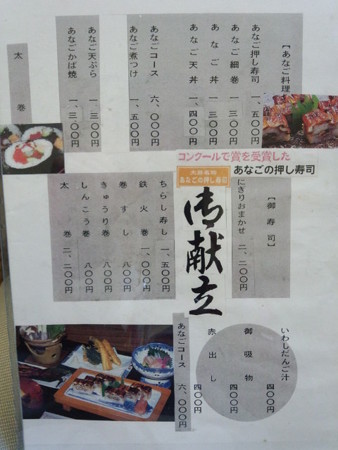 【あなご料理】
あなご押し寿司 一、五〇〇円
あなご細巻 一、三〇〇円
あなご丼 一、三〇〇円
あなご天丼 一、四〇〇円
あなごコース 六、〇〇〇円
あなご煮つけ 一、五〇〇円
あなご天ぷら 一、三〇〇円
あなごかば焼 一、三〇〇円
太巻
コンクールで賞を受賞した
あなごの押し寿司
あなごの押し寿司
御献立
【御寿司】
にぎりおまかせ 二、二〇〇円
ちらし寿し 一、五〇〇円
鉄火巻 一、〇〇〇円
巻ずし 八〇〇円
きゅうり巻 八〇〇円
しんこう巻 八〇〇円
太巻 二、二〇〇円
いわしだんご汁 四〇〇円
御吸物 四〇〇円
赤出し 四〇〇円
あなごコース 六、〇〇〇円